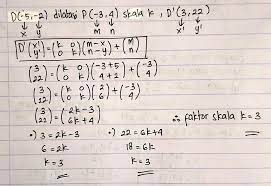 D(-5,-2) dilatasi P(-3,4) skala k, D'(3,22)
↓ ↓ ↓ ↓ ↓ ↓
x y m n x' y'
D'(x' y') = (k 0 0 k)(m-x n-y) + (m n)
(3 22) = (k 0 0 k)(-3+5 4+2) + (-3 4)
(3 22) = (k 0 0 k)(2 6) + (-3 4)
(3 22) = (2k-3 6k+4)
∴ faktor skala k = 3
•) 3 = 2k-3 •) 22 = 6k+4
6 = 2k 18 = 6k
k = 3 k = 3